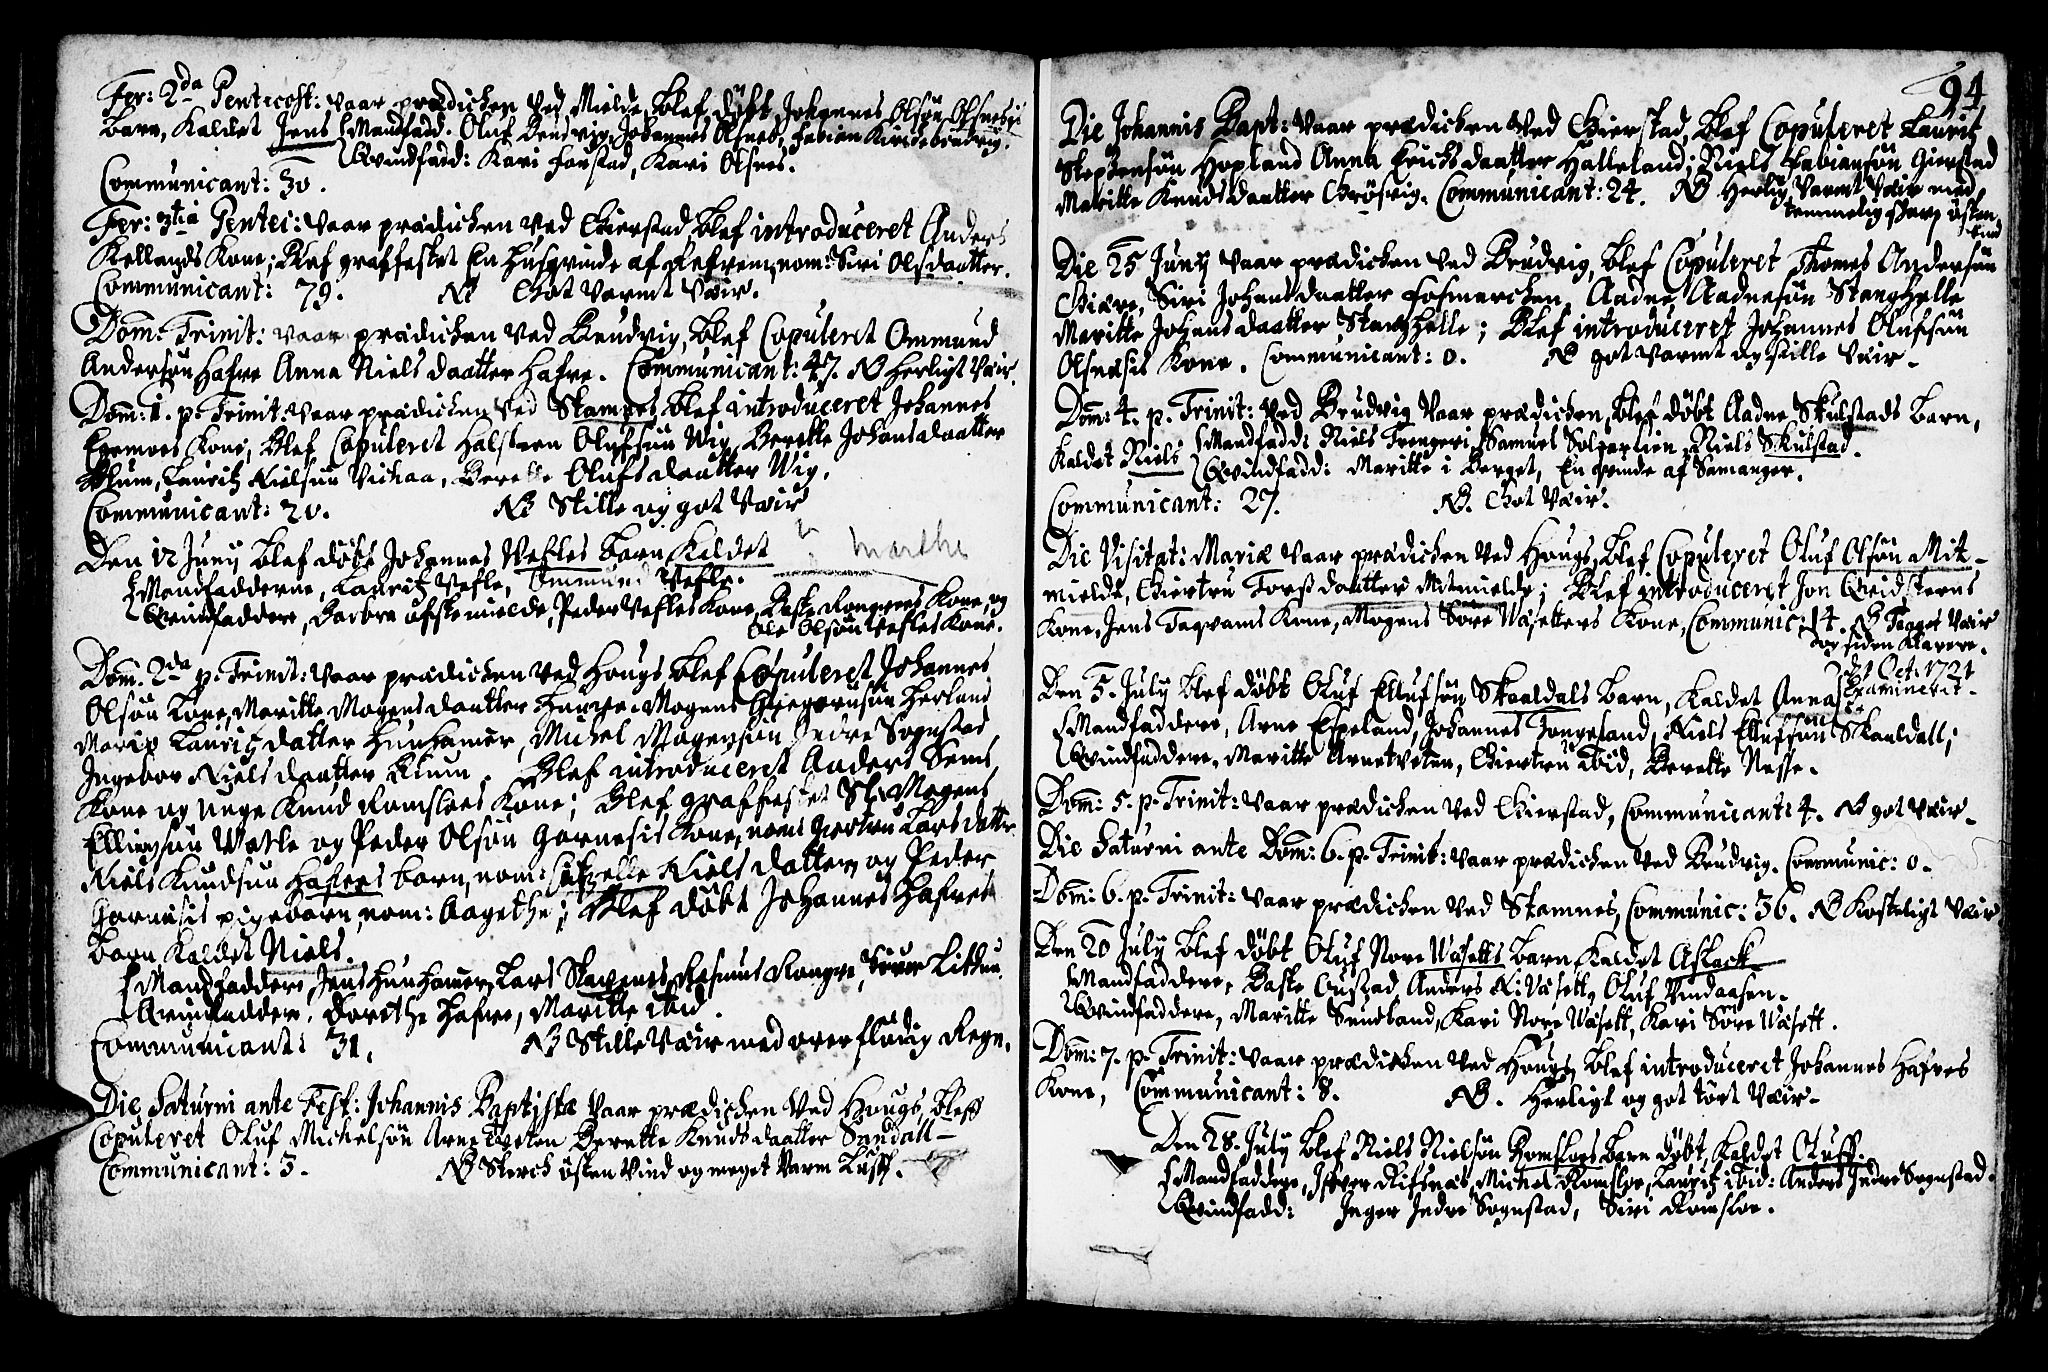 Fer: 2da Pentecost: vaar prædicken ved Mielde, blef døbt Johannes Olsøn Olsnesis
barn, Kaldet Jens { Mandfadd. Oluf Brudvig, Johannes Olsnes, Fabian Brudvig.
Qvindfadd: Kari Fosstad, Kari Olsnes.
Communicant: 30.
Fer: 3tia Pentec: vaar prædicken ved Gierstad, blef introduceret Anders
Kellands Kone; Blef graffestet En husqvinde af nom: Siri Olsdaatter.
Communicant: 79. NB Got varmt Vær.
Dom: Trinit: vaar prædicken ved Brudvig, blef Copuleret Ommund
Andersøn Hafre Anna Niels daatter Hafre. Communicant: 47. NB Herligt Vær.
Dom: 1. p. Trinit: vaar prædicken ved Stamnes, blef introduceret Johannes
Kone, Blef Copuleret Halsteen Olufsøn Wig, Berette Johansdaatter
Lauritz Nielsøn Vichaa, Berette Olufsdaatter Wig.
Communicant: 20. NB Stille og got Vær
Den 12 Junij blef døbt Johannes Vefles barn Kaldet Marthe
{ Mandfadderne, Lauritz Vefle, Ommund Vefle.
Qvindfaddere, Barbra øfste mielde, Peder Vefles Kone, Baste Kone, og
Ole Olsøn Vefles Kone.
Dom: 2da p. Trinit: vaar prædicken ved Hougs, blef Copuleret Johannes
Olsøn Maritte Mogensdaatter Mogens Herland
Marite Lauritz datter Hunhamer, Michel Mogensøn Indre Sognstad,
Ingebor Niels daatter Blef introduceret Anders
Kone og Unge Knud Romsloes Kone; Blef graffestet Sl. Mogens
Ellingsøn Vefle og Peder Olsøn Garnesis Kone, nom: Giertru Lars datter
Niels Knudsøn Hafres barn, nom: Sitzelle Niels datter, og Peder
Garnesis pigebarn, nom: Aagethe; Blef døbt Johannes Hafres
barn Kaldet Niels.
{ Mandfaddere, Jens Hunhamer, Lars Rasmus
Qvindfaddere. Dorethe Hafre, Maritte ibid.
Communicant: 31. NB Stille Vær med overflødig Regn.
Die Saturni ante Fest: Johannis Baptistæ vaar prædicken ved Hougs, bleff
Copuleret Oluf Michelsøn Arnetveten Berette Knudsdaatter Sandall
Communicant: 3. NB Sterch østen Vind og meget Varm Lufft.
94
Die Johannis Bapt: vaar prædicken ved Gierstad, blef Copuleret Lauritz
Steffensøn Hopland Anna Erichsdaatter Halleland; Niels Fabiansøn Gierstad
Maritte Knudsdaatter Communicant: 24. NB Herlig Varmt Vær med
temmelig skarp østen
Vind
Die 25 Junij vaar prædicken ved Brudvig, blef Copuleret Thomes Andersøn
Siri Johansdaatter Fosmarchen, Aadne Aadnesøn Stanghelle
Maritte Johansdaatter Stanghelle; Blef introduceret Johannes Olufsøn
Olsnæsis Kone. Communicant: 0. NB got varmt og stille Vær
Dom: 4. p. Trinit: ved Brudvig vaar prædicken, blef døbt Aadne Skulstads barn,
Kaldet Niels { Mandfadd: Niels Trengeri, Samuel Niels Skulstad.
Qvindfadd: Maritte i Berget, En qvinde af Samanger.
Communicant: 27. NB. Got Vær.
Die Visitat: Mariæ vaar prædicken ved Hougs, blef Copuleret Oluf Olsøn Mit-
mielde, Giertru daatter Mitmielde; Blef introduceret Jon
Kone, Jens Tagvams Kone, Mogens Søre Wasetters Kone, Communic: 14. NB Vær
og siden Klarere.
Den 5. July blef døbt Oluf Ellufsøn Skaaldals barn, Kaldet Anna Oct: 1721
Examinerit
{ Mandfaddere, Arne Espeland, Johannes Tongeland, Niels Ellufsøn Skaaldall;
Qvindfaddere, Maritte Arnetveten, Giertru ibid, Berette Nesse.
Dom: 5. p. Trinit: vaar prædicken ved Gierstad, Communicant: 4. NB got vær
Die Saturni ante Dom: 6. p. Trinit: vaar prædicken ved Brudvig. Communic: 0.
Dom: 6. p. Trinit: vaar prædicken ved Stamnes, Communic: 36. NB Kosteligt Vær
Den 20 July blef døbt Oluf Nore Wasetts barn Kaldet Aslack
{ Mandfaddere, Baste Gustad, Anders N: Vasett, Oluf Vindaasen.
Qvindfaddere, Maritte Sundland, Kari Nore Wasett, Kari Søre Wasett.
Dom: 7. p. Trinit: vaar prædicken ved Hougs, blef introduceret Johannes Hafres
Kone, Communicant: 8. NB. Herligt og got tørt Vær
Den 28. July blef Niels Nielsøn Romsloes barn døbt, Kaldet Oluff.
{ Mandfaddere, Ifver Rifsnes, Michel Romsloe, Lauritz ibid: Anders Indre Sognstad.
Qvindfadd: Inger Indre Sognstad, Siri Romsloe.